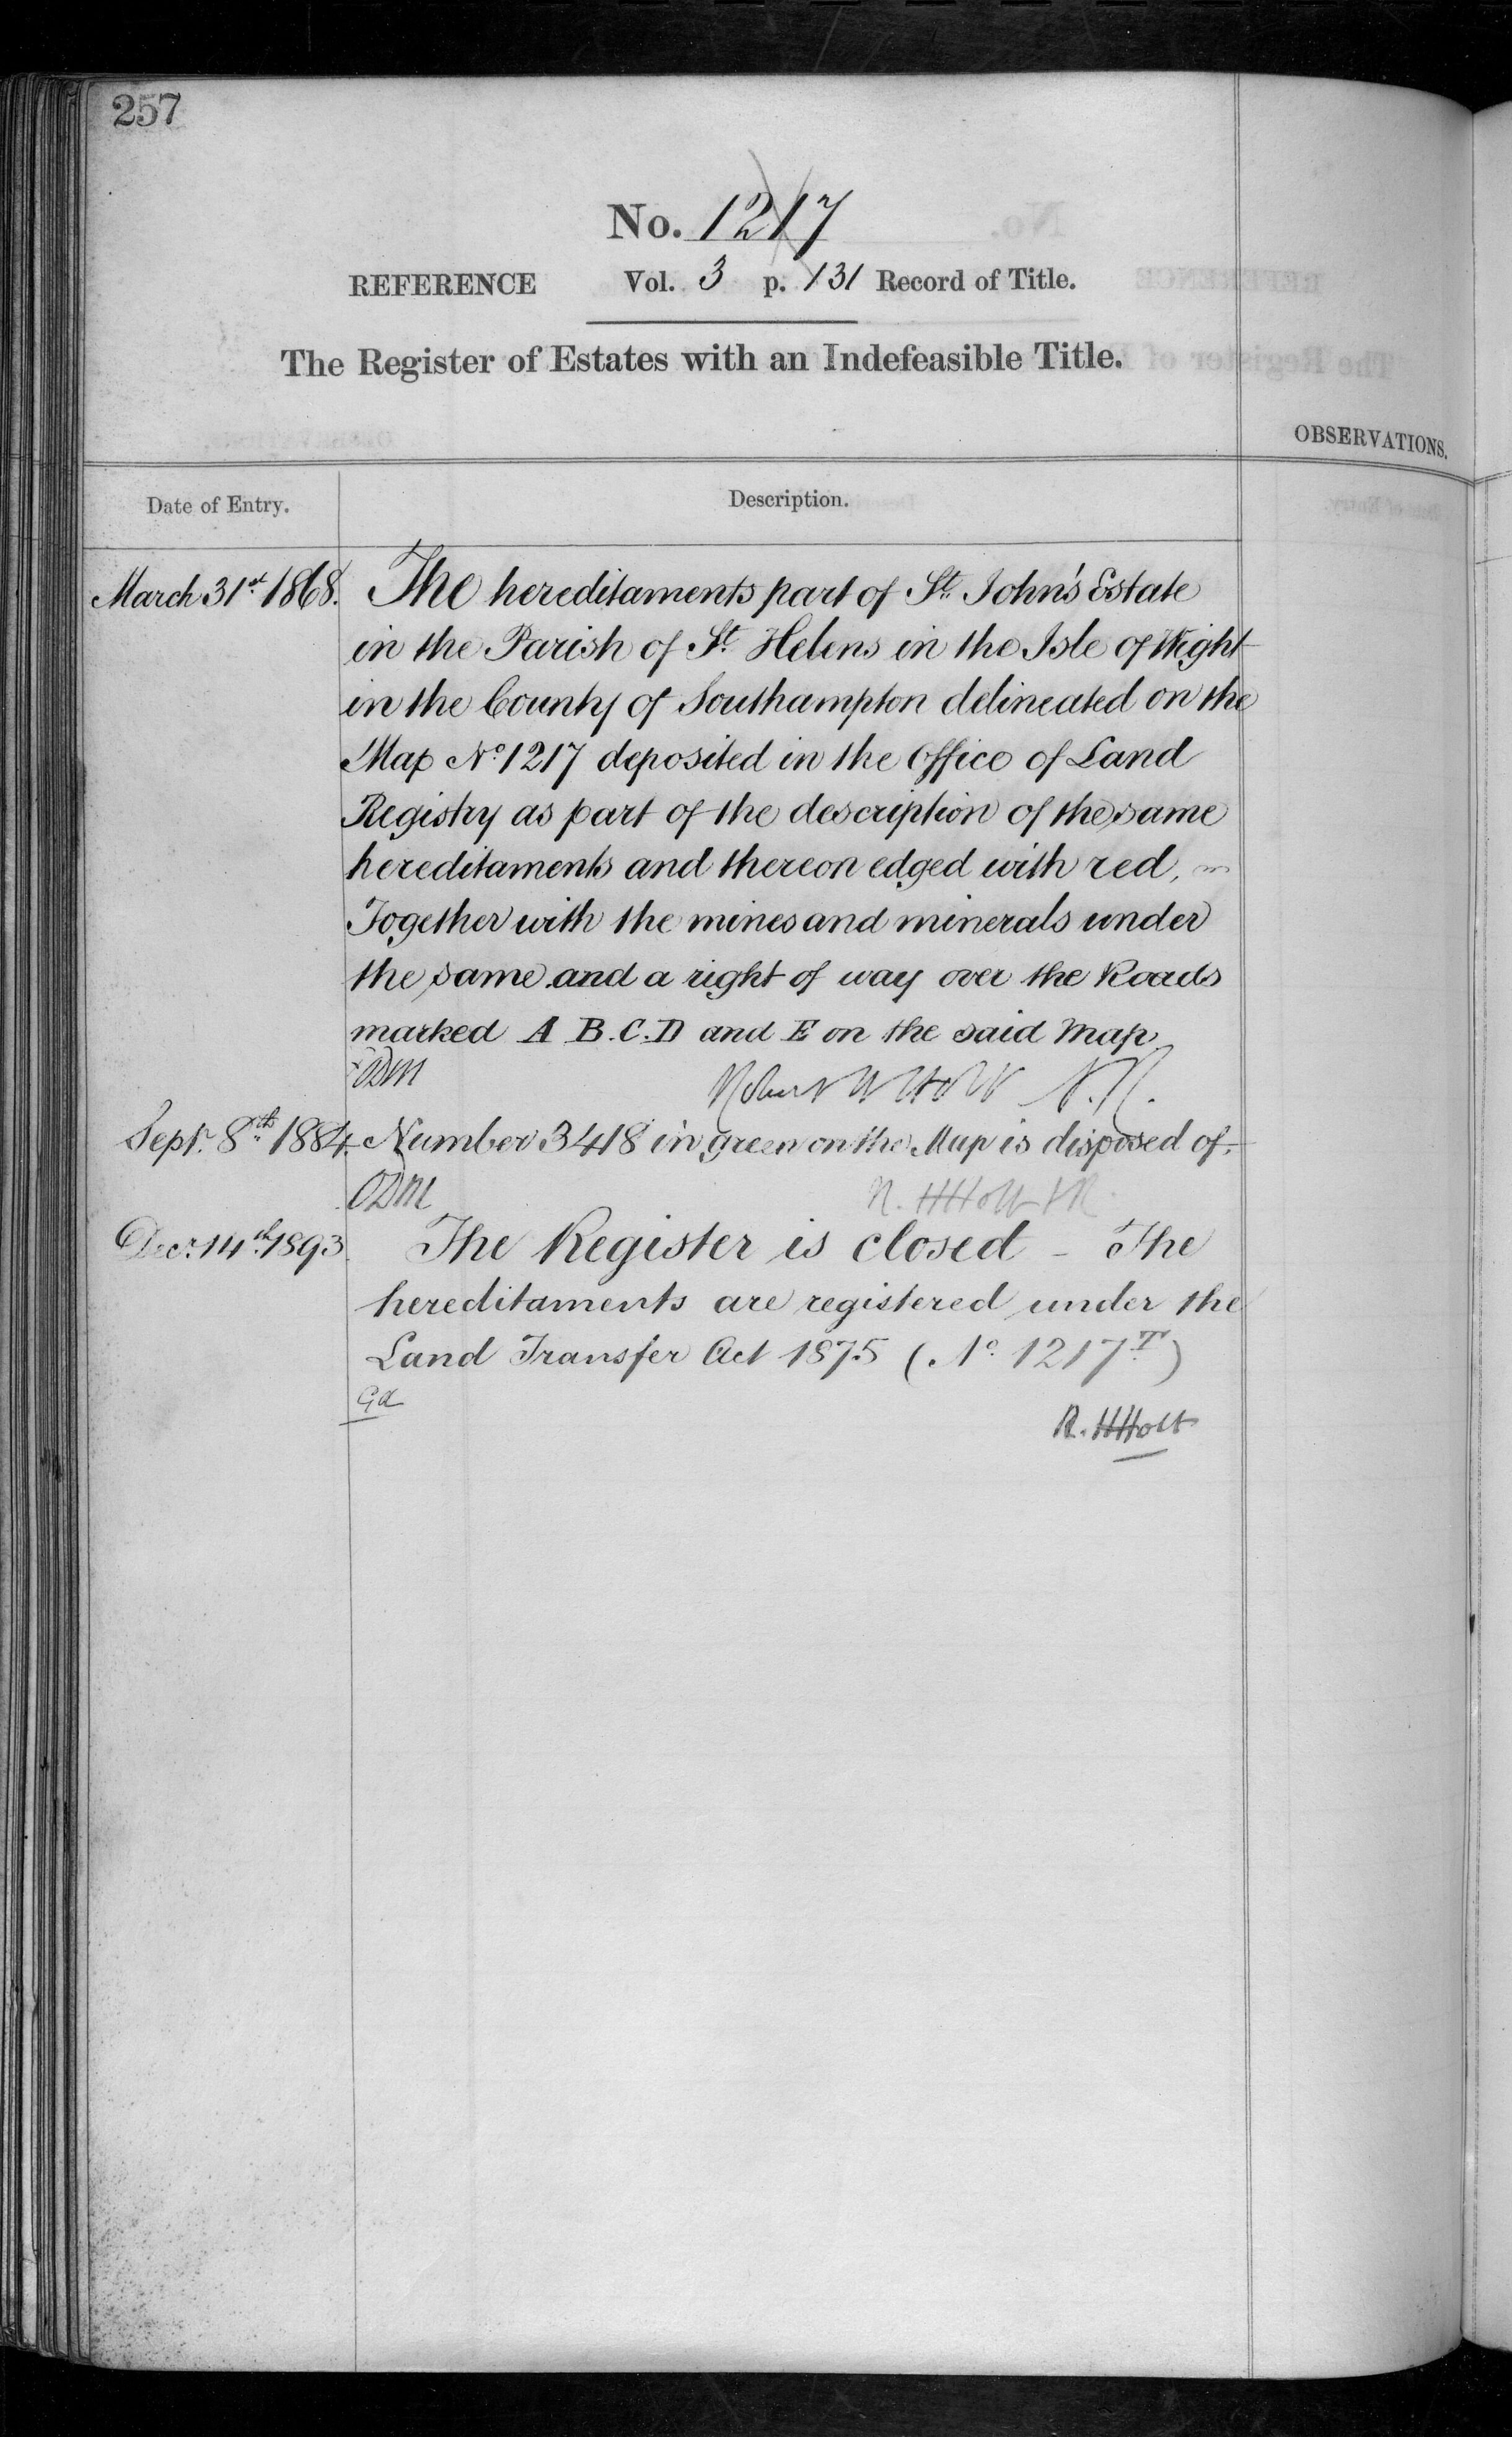 257
No. 1217
REFERENCE Vol. 3 p. 131 Record of Title.
The Register of Estates with an Indefeasible Title.
OBSERVATIONS.
Date of Entry. Description.
March 31st 1868. The hereditaments part of St. John's Estate
in the Parish of St. Helens in the Isle of Wight
in the County of Southampton delineated on the
Map No. 1217 deposited in the Office of Land
Registry as part of the description of the same
hereditaments and thereon edged with red,
Together with the mines and minerals under
the same and a right of way over the Roads
marked A B.C.D and E on the said Map
ODM
Sepr. 8th 1884. Number 3418 in green on the Map is disposed of.
ODM R. H Holt
Decr. 14th 1893. The Register is closed - The
hereditaments are registered under the
Land Transfer Act 1875 (No. 1217T)
R. H Holt